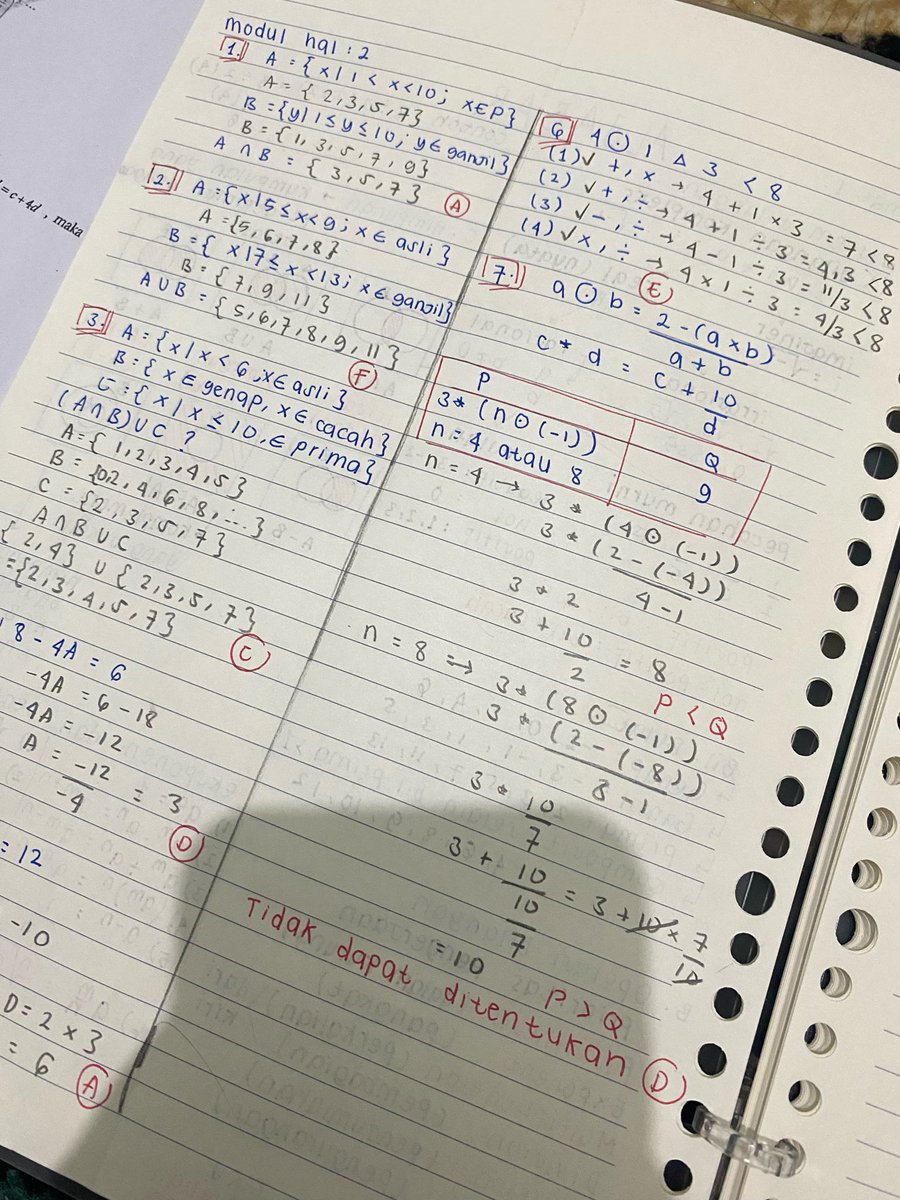 = c + 4d , maka
modul hal : 2
1. A = {x | 1 < x < 10 ; x ∈ P}
A = { 2, 3, 5, 7}
B = {y | 1 ≤ y ≤ 10 ; y ∈ ganjil}
B = {1, 3, 5, 7, 9}
A ∩ B = { 3, 5, 7 } A
2. A = {x | 5 ≤ x < 9 ; x ∈ asli }
A = {5, 6, 7, 8}
B = { x | 7 ≤ x < 13 ; x ∈ ganjil}
B = { 7, 9, 11 }
A ∪ B = { 5, 6, 7, 8, 9, 11 }
F
3. A = {x | x < 6 , x ∈ asli }
B = {x ∈ genap, x ∈ cacah}
C = {x | x ≤ 10, ∈ prima}
(A ∩ B) ∪ C ?
A = { 1, 2, 3, 4, 5 }
B = {0, 2, 4, 6, 8, ...}
C = {2, 3, 5, 7 }
A ∩ B ∪ C
{ 2, 4} ∪ { 2, 3, 5, 7 }
= {2, 3, 4, 5, 7 }
C
8 - 4A = 6
-4A = 6 - 18
-4A = -12
A = -12/-4 = 3
D
= 12
-10
D = 2 × 3
= 6
A
6 4 ⊙ 1 △ 3 < 8
(1) √ +, × → 4 + 1 × 3 = 7 < 8
(2) √ +, ÷ → 4 + 1 ÷ 3 = 4,3 < 8
(3) √ -, ÷ → 4 - 1 ÷ 3 = 11/3 < 8
(4) √ ×, ÷ → 4 × 1 ÷ 3 = 4/3 < 8
E
7. a ⊙ b = 2 - (a × b) / a + b
c * d = c + 10/d
P Q
3 * (n ⊙ (-1)) 9
n = 4 atau 8
n = 4 → 3 * (4 ⊙ (-1))
3 * (2 - (-4)) / 4 - 1
3 * 2
3 + 10/2 = 8
P < Q
n = 8 => 3 * (8 ⊙ (-1))
3 * (2 - (-8)) / 8 - 1
3 * 10/7
3 + 10 / 10/7 = 3 + 10 × 7/10
= 10
P > Q
Tidak dapat ditentukan D